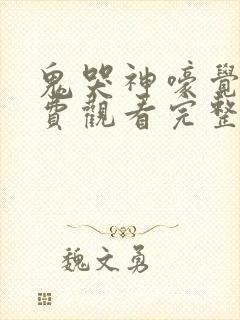 鬼哭神嚎覺
費觀看完整
魏文勇